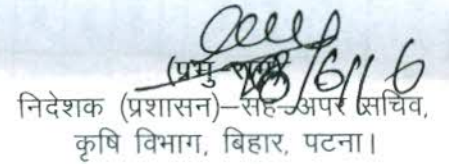 (प्रभु राम)
28/6/16
निदेशक (प्रशासन)–सह–अपर सचिव,
कृषि विभाग, बिहार, पटना।